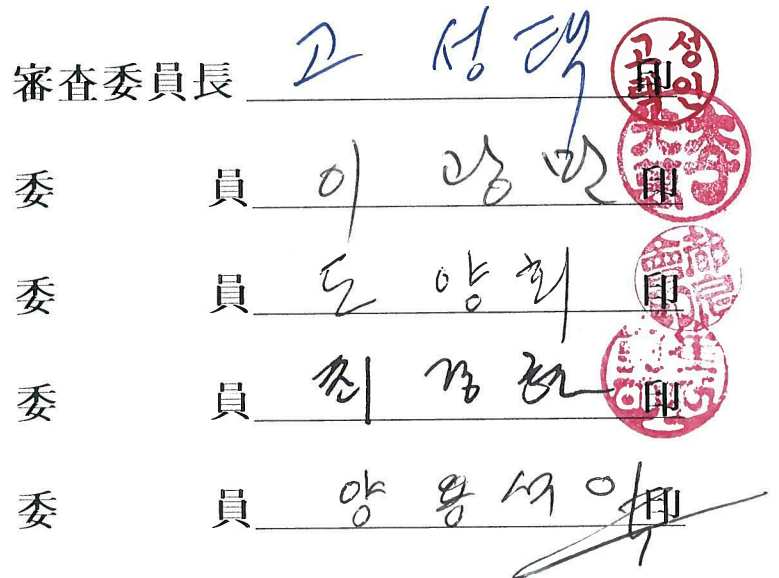 審査委員長 고 성 택 印
委 員 이 광 만 印
委 員 도 양 회 印
委 員 최 경 印
委 員 양 용 석 印